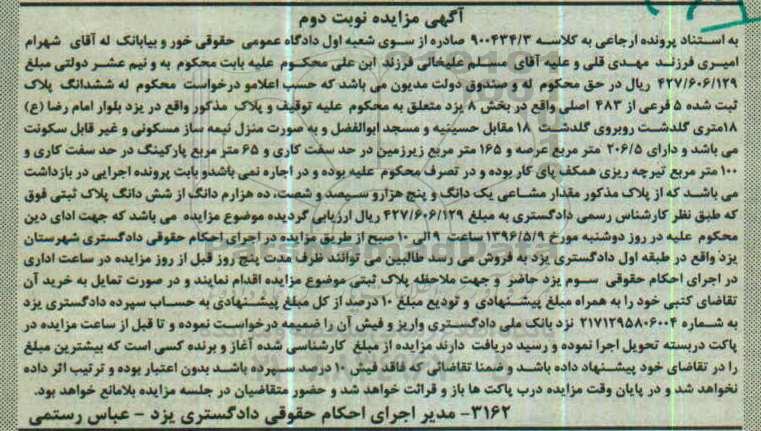 آگهی مزایده نوبت دوم
به استناد پرونده ارجاعی به کلاسه ۹۰۰۴۳۴/۳ صادره از سوی شعبه اول دادگاه عمومی حقوقی خور و بیابانک له آقای شهرام
امیری فرزند مهدی قلی و علیه آقای مسلم علیخانی فرزند ابن علی محکوم علیه بابت محکوم به و نیم عشر دولتی مبلغ
۴۲۷/۶۰۶/۱۲۹ ریال در حق محکوم له و صندوق دولت مدیون می باشد که حسب اعلامو درخواست محکوم له ششدانگ پلاک
ثبت شده ۵ فرعی از ۴۸۳ اصلی واقع در بخش ۸ یزد متعلق به محکوم علیه توقیف و پلاک مذکور واقع در یزد بلوار امام رضا (ع)
۱۸متری گلدشت روبروی گلدشت ۱۸ مقابل حسینیه و مسجد ابوالفضل و به صورت منزل نیمه ساز مسکونی و غیر قابل سکونت
می باشد و دارای ۲۰۶/۵ متر مربع عرصه و ۱۶۵ متر مربع زیرزمین در حد سفت کاری و ۶۵ متر مربع پارکینگ در حد سفت کاری و
۱۰۰ متر مربع تیرچه ریزی همکف پای کار بوده و در تصرف محکوم علیه بوده و در اجاره نمی باشدو بابت پرونده اجرایی در بازداشت
می باشد که از پلاک مذکور مقدار مشاعی یک دانگ و پنج هزارو سیصد و شصت، ده هزارم دانگ از شش دانگ پلاک ثبتی فوق
که طبق نظر کارشناس رسمی دادگستری به مبلغ ۴۲۷/۶۰۶/۱۲۹ ریال ارزیابی گردیده موضوع مزایده می باشد که جهت ادای دین
محکوم علیه در روز دوشنبه مورخ ۱۳۹۶/۵/۹ ساعت ۹ الی ۱۰ صبح از طریق مزایده در اجرای احکام حقوقی دادگستری شهرستان
یزد واقع در طبقه اول دادگستری یزد به فروش می رسد طالبین می توانند ظرف مدت پنج روز قبل از روز مزایده در ساعت اداری
در اجرای احکام حقوقی سوم یزد حاضر و جهت ملاحظه پلاک ثبتی موضوع مزایده اقدام نمایند و در صورت تمایل به خرید آن
تقاضای کتبی خود را به همراه مبلغ پیشنهادی و تودیع مبلغ ۱۰ درصد از کل مبلغ پیشنهادی به حساب سپرده دادگستری یزد
به شماره ۲۱۷۱۲۹۵۸۰۶۰۰۴ نزد بانک ملی دادگستری واریز و فیش آن را ضمیمه درخواست نموده و تا قبل از ساعت مزایده در
پاکت دربسته تحویل اجرا نموده و رسید دریافت دارند مزایده از مبلغ کارشناسی شده آغاز و برنده کسی است که بیشترین مبلغ
را در تقاضای خود پیشنهاد داده باشد و ضمنا تقاضائی که فاقد فیش ۱۰ درصد سپرده باشد بدون اعتبار بوده و ترتیب اثر داده
نخواهد شد و در پایان وقت مزایده درب پاکت ها باز و قرائت خواهد شد و حضور متقاضیان در جلسه مزایده بلامانع خواهد بود.
۳۱۶۲- مدیر اجرای احکام حقوقی دادگستری یزد - عباس رستمی